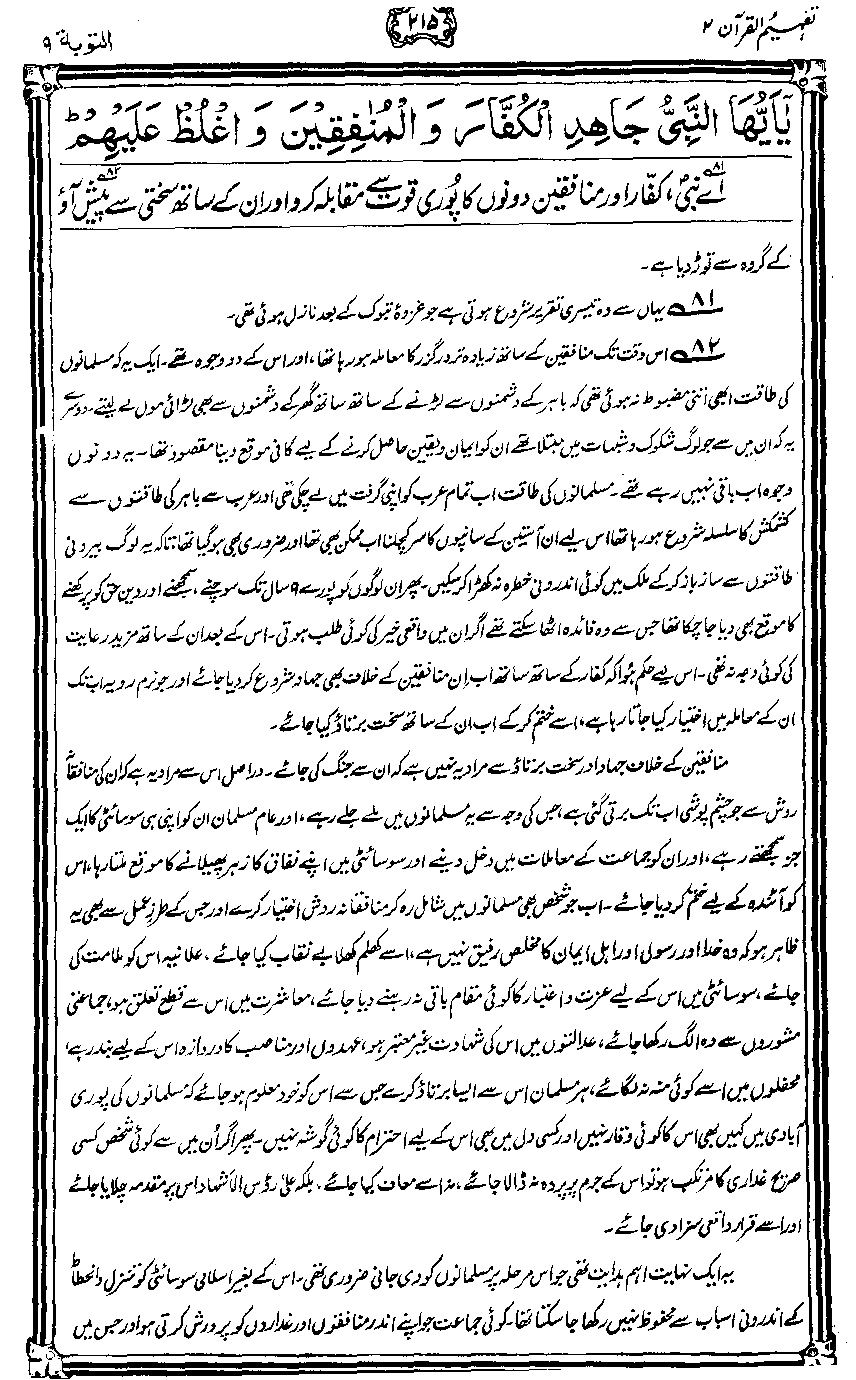 تفہیم القرآن ۲
۲۱۵
التوبۃ ۹
يٰۤاَيُّهَا النَّبِيُّ جَاهِدِ الْكُفَّارَ وَ الْمُنٰفِقِيْنَ وَ اغْلُظْ عَلَيْهِمْ ؕ
اے نبیؐ،۸۱ کفّار اور منافقین دونوں کا پُوری قوت سے مقابلہ کرو اور ان کے ساتھ سختی سے پیش آؤ۸۲
کے گروہ سے توڑ دیا ہے۔
۸۱ یہاں سے وہ تیسری تقریر شروع ہوتی ہے جو غزوۂ تبوک کے بعد نازل ہوئی تھی۔
۸۲ اس وقت تک منافقین کے ساتھ زیادہ تر درگزر کا معاملہ ہو رہا تھا، اور اس کے دو وجوہ تھے۔ ایک یہ کہ مسلمانوں
کی طاقت ابھی اتنی مضبوط نہ ہوئی تھی کہ باہر کے دشمنوں سے لڑنے کے ساتھ ساتھ گھر کے دشمنوں سے بھی لڑائی مول لے لیتے۔ دوسرے
یہ کہ ان میں سے جو لوگ شکوک و شبہات میں مبتلا تھے ان کو ایمان و یقین حاصل کرنے کے لیے کافی موقع دینا مقصود تھا۔ یہ دونوں
وجوہ اب باقی نہیں رہے تھے۔ مسلمانوں کی طاقت اب تمام عرب کو اپنی گرفت میں لے چکی تھی اور عرب سے باہر کی طاقتوں سے
کشمکش کا سلسلہ شروع ہو رہا تھا اس لیے ان آستین کے سانپوں کا سر کچلنا اب ممکن بھی تھا اور ضروری بھی ہو گیا تھا، تاکہ یہ لوگ بیرونی
طاقتوں سے ساز باز کر کے ملک میں کوئی اندرونی خطرہ نہ کھڑا کر سکیں۔ پھر ان لوگوں کو پورے ۹ سال تک سوچنے، سمجھنے اور دین حق کو پرکھنے
کا موقع بھی دیا جا چکا تھا جس سے وہ فائدہ اٹھا سکتے تھے اگر ان میں واقعی خیر کی کوئی طلب ہوتی۔ اس کے بعد ان کے ساتھ مزید رعایت
کی کوئی وجہ نہ تھی۔ اس لیے حکم ہوا کہ کفار کے ساتھ ساتھ اب اِن منافقین کے خلاف بھی جہاد شروع کر دیا جائے اور جو نرم رویہ اب تک
ان کے معاملہ میں اختیار کیا جاتا رہا ہے، اسے ختم کر کے اب ان کے ساتھ سخت برتاؤ کیا جائے۔
منافقین کے خلاف جہاد اور سخت برتاؤ سے مراد یہ نہیں ہے کہ ان سے جنگ کی جائے۔ دراصل اس سے مراد یہ ہے کہ ان کی منافقانہ
روش سے جو چشم پوشی اب تک برتی گئی ہے، جس کی وجہ سے یہ مسلمانوں میں ملے جلے رہے، اور عام مسلمان ان کو اپنی ہی سوسائٹی کا ایک
جز سمجھتے رہے، اور ان کو جماعت کے معاملات میں دخل دینے اور سوسائٹی میں اپنے نفاق کا زہر پھیلانے کا موقع ملتا رہا، اس
کو آئندہ کے لیے ختم کر دیا جائے۔ اب جو شخص بھی مسلمانوں میں شامل رہ کر منافقانہ روش اختیار کرے اور جس کے طرزِ عمل سے بھی یہ
ظاہر ہو کہ وہ خدا اور رسول اور اہل ایمان کا مخلص رفیق نہیں ہے، اسے کھلم کھلا بے نقاب کیا جائے، علانیہ اس کو ملامت کی
جائے، سوسائٹی میں اس کے لیے عزت و اعتبار کا کوئی مقام باقی نہ رہنے دیا جائے، معاشرت میں اس سے قطع تعلق ہو، جماعتی
مشوروں سے وہ الگ رکھا جائے، عدالتوں میں اس کی شہادت غیر معتبر ہو، عہدوں اور مناصب کا دروازہ اس کے لیے بند رہے،
محفلوں میں اسے کوئی منہ نہ لگائے، ہر مسلمان اس سے ایسا برتاؤ کرے جس سے اس کو خود معلوم ہو جائے کہ مسلمانوں کی پوری
آبادی میں کہیں بھی اس کا کوئی وقار نہیں اور کسی دل میں بھی اس کے لیے احترام کا کوئی گوشہ نہیں۔ پھر اگر اُن میں سے کوئی شخص کسی
صریح غداری کا مرتکب ہو تو اس کے جرم پر پردہ نہ ڈالا جائے، نہ اسے معاف کیا جائے، بلکہ علیٰ رؤس الاشہاد اس پر مقدمہ چلایا جائے
اور اسے قرار واقعی سزا دی جائے۔
یہ ایک نہایت اہم ہدایت تھی جو اس مرحلہ پر مسلمانوں کو دی جانی ضروری تھی۔ اس کے بغیر اسلامی سوسائٹی کو تنزل و انحطاط
کے اندرونی اسباب سے محفوظ نہیں رکھا جا سکتا تھا۔ کوئی جماعت جو اپنے اندر منافقوں اور غداروں کو پرورش کرتی ہو اور جس میں